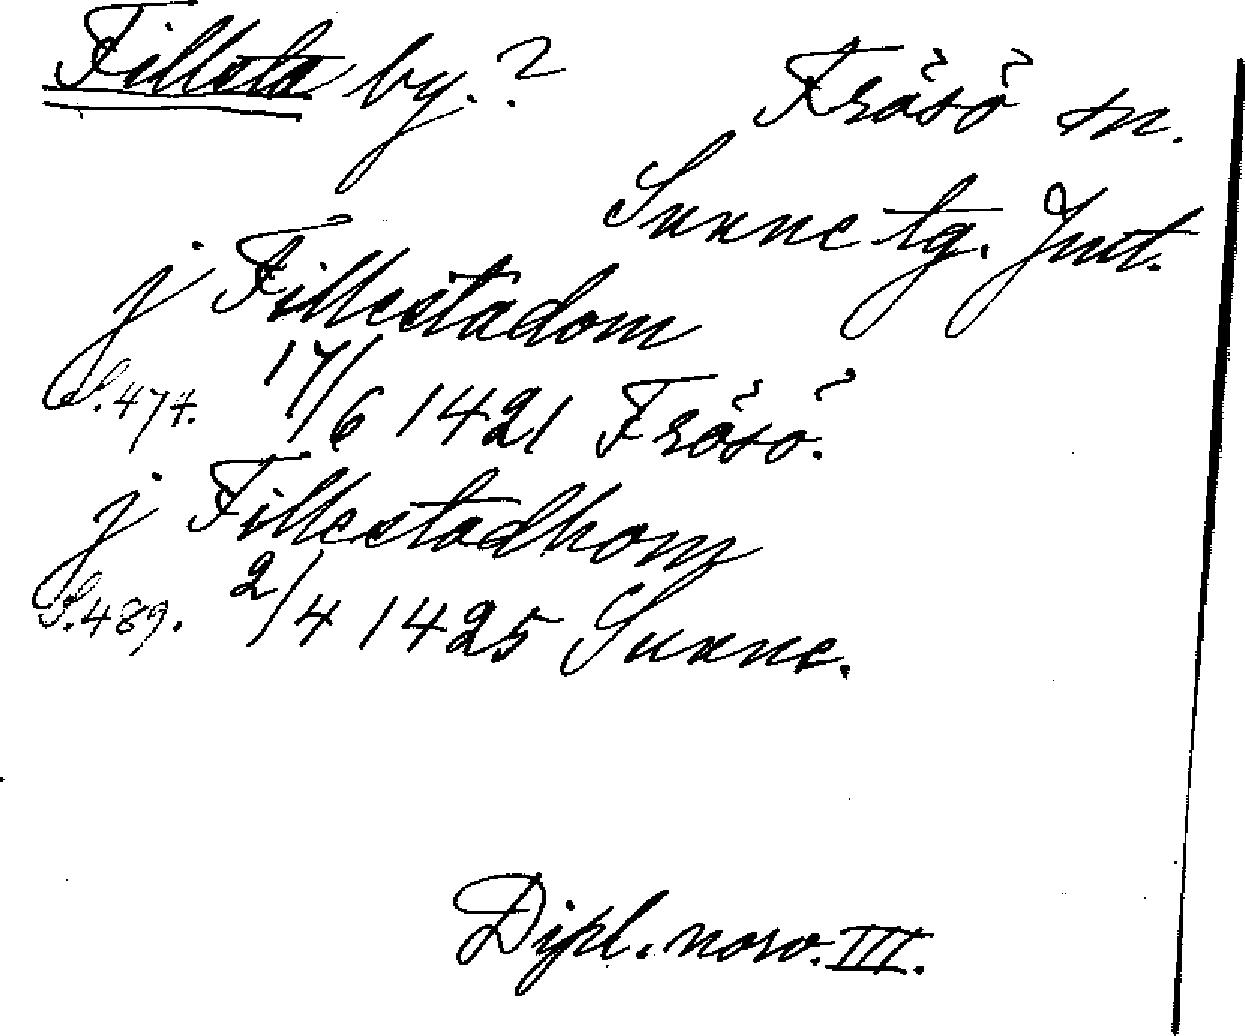 Fillsta by.?
Frösö sn.
Sunne tg. Jmt.
j Fillestadom
S. 474. 17/6 1421 Frösö.
j Fillestadhom
S. 489. 2/4 1425 Sunne.
Dipl. norv. III.